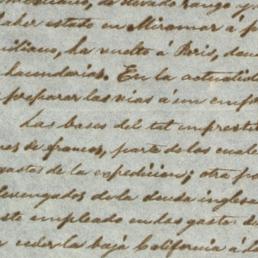 de elevado rango y
haber estado en Miramar á p
idiano, ha vuelto a Paris, don
hacendarias. En la actualid
preparar las vias á un emp
Las bases del tal emprest
es de francos, parte de los cuale
gastos de la expedicion; otra po
devengados de la deuda inglesa
sto empleado en des gastos d
ceder la baja California á lo